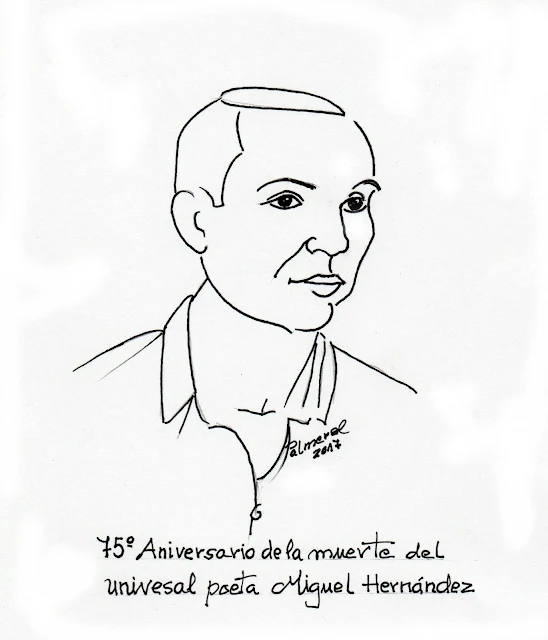 Palmeral
2017
75º Aniversario de la muerte del
univesal poeta Miguel Hernández